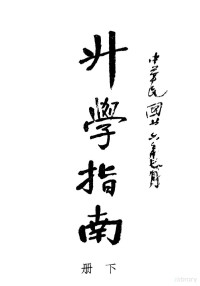 中華民國廿六年
升學指南
下册